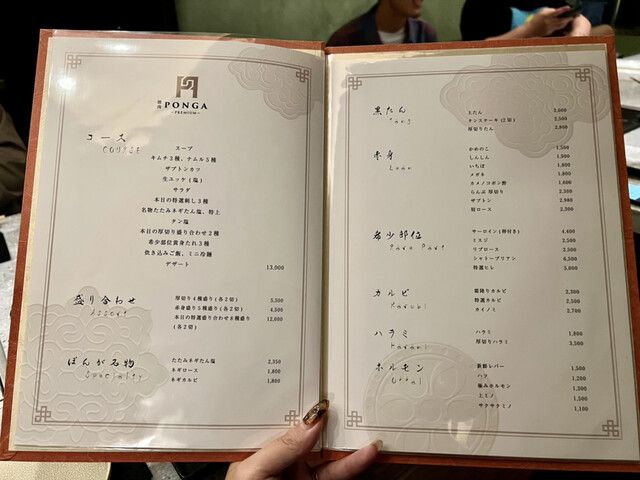 焼肉 PONGA
- PREMIUM -
コース
COURSE
スープ
キムチ3種、ナムル5種
ザブトンカツ
生ユッケ(塩)
サラダ
本日の特選刺し3種
名物たたみネギたん塩、特上
タン塩
本日の厚切り盛り合わせ2種
希少部位黄身たれ3種
炊き込みご飯、ミニ冷麺
デザート
13,000
盛り合わせ
Assort
厚切り4種盛り(各2切) 5,500
赤身盛り5種盛り(各2切) 4,500
本日の特選盛り合わせ8種盛り 12,000
(各2切)
ぽんが名物
Specialty
たたみネギたん塩 2,350
ネギロース 1,800
ネギカルビ 1,800
黒たん
Tong
上たん 2,000
タンステーキ(2切) 2,500
厚切りたん 2,800
赤身
Lean
かめのこ 1,500
しんしん 1,900
いちぼ 1,800
メガネ 1,800
カメノコポン酢 1,800
らんぷ厚切り 2,300
ザブトン 2,980
肩ロース 2,300
希少部位
Rare Part
サーロイン(卵付き) 4,400
ミスジ 2,500
リブロース 2,500
シャトーブリアン 6,500
特選ヒレ 5,000
カルビ
Karubi
霜降りカルビ 2,300
特選カルビ 2,500
カイノミ 2,700
ハラミ
Harami
ハラミ 1,800
厚切りハラミ 3,500
ホルモン
新鮮レバー 1,500
ハツ 1,200
極みホルモン 1,300
上ミノ 1,500
サクサクミノ 1,100